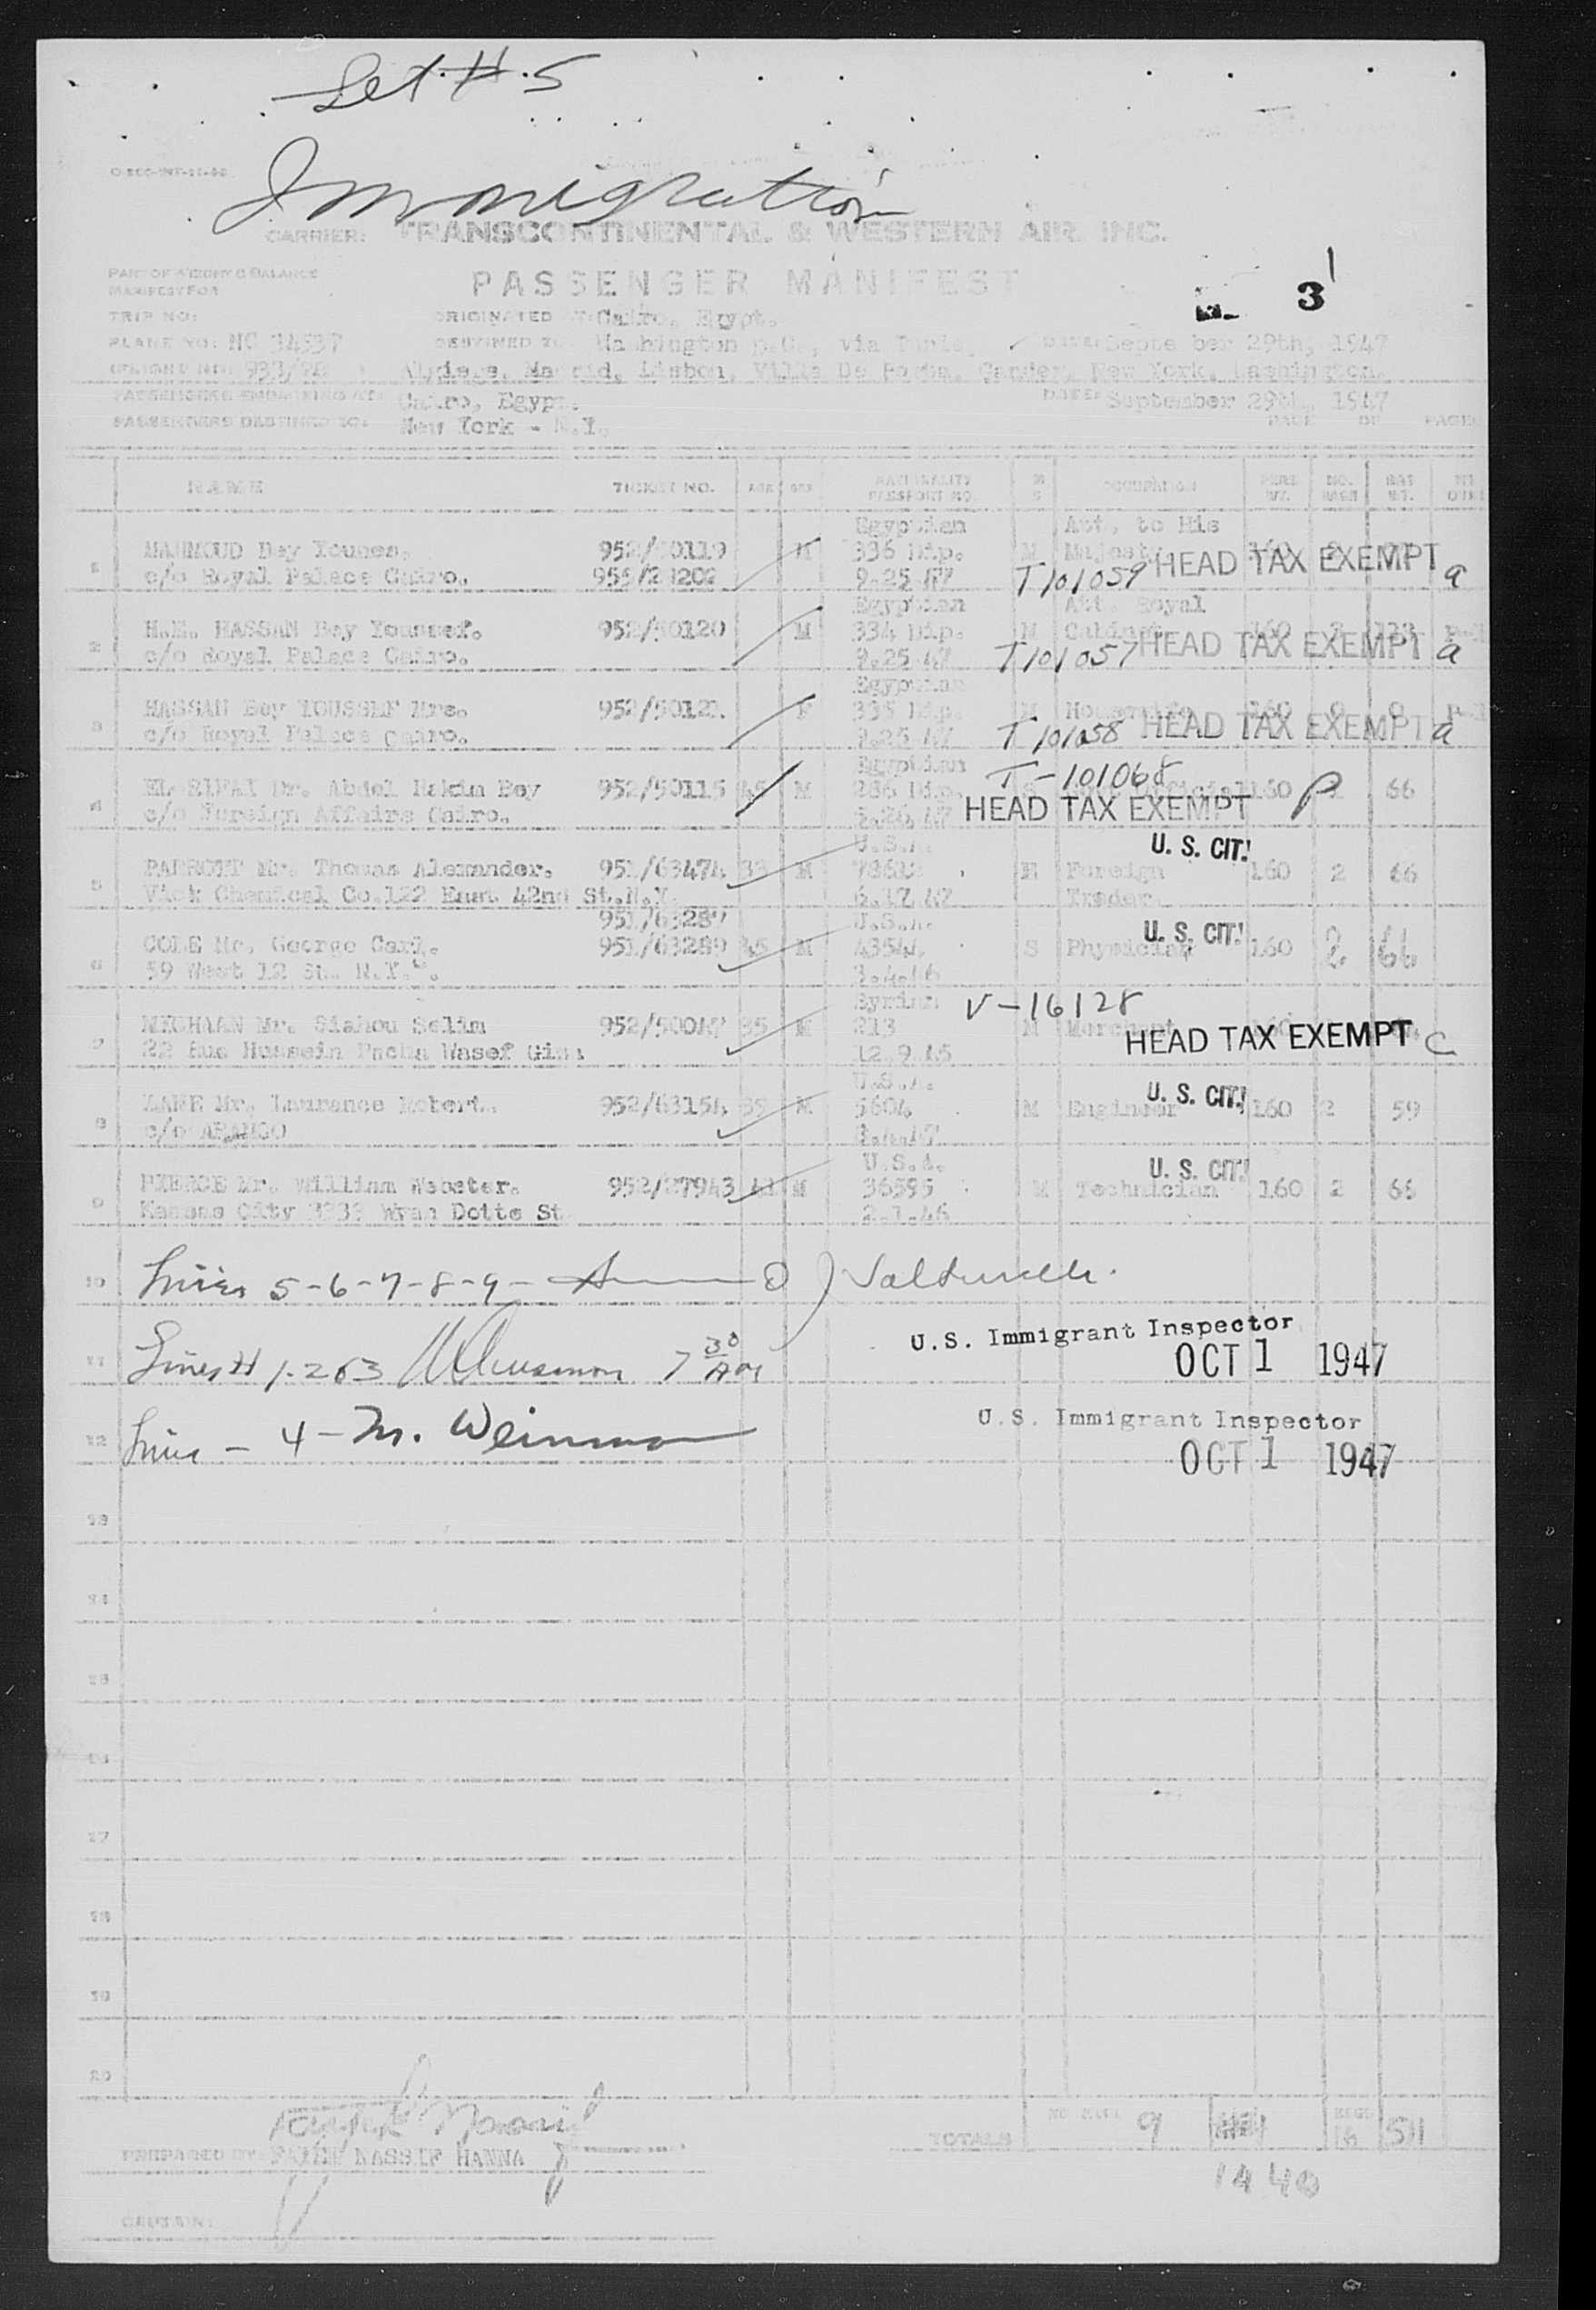 Set # 5
Immigration
CARRIER: TRANSCONTINENTAL & WESTERN AIR INC.
PASSENGER MANIFEST
MANIFEST FOR
3
TRIP NO: ORIGINATED Cairo, Egypt.
PLANE NO: NC DESTINED TO Washington D.C., via Tunis, DATE: September 29th, 1947
Algiers, Madrid, Lisbon, Villa De Porto, Gander, New York, Washington.
PASSENGERS EMBARKING AT: Cairo, Egypt. DATE: September 29th, 1947
PASSENGERS DESTINED TO: New York - N.Y. PAGE OF PAGES
NAME TICKET NO. AGE SEX NATIONALITY PASSPORT NO. M S OCCUPATION PERS WT. NO. BAGS BAG WT.
Egyptian Att. to His
1 MAHMOUD Bey Younes. 952/50119 M 336 Dip. M Majesty 160 2 HEAD TAX EXEMPT
c/o Royal Palace Cairo. 9.25.47 T101059 a
Egyptian Att. Royal
2 H.E. HASSAN Bey Youssef. 952/50120 M 334 Dip. M Cabinet 160 HEAD TAX EXEMPT
c/o Royal Palace Cairo. 9.25.47 T101057 a
Egyptian
3 HASSAN Bey YOUSSEF Mrs. 952/50121 F 335 Dip. M Housewife 160 0 0
c/o Royal Palace Cairo. 9.25.47 T101058 HEAD TAX EXEMPT a
Egyptian T-101068
4 EL RIFAI Dr. Abdel Hakim Bey 952/50115 45 M 286 Dip. S Official 160 66
c/o Foreign Affairs Cairo. 5.26.47 HEAD TAX EXEMPT
U.S.A. U. S. CIT.
5 PARROTT Mr. Thomas Alexander. 951/63474 33 M M Foreign 160 2 66
Vick Chemical Co. 122 East 42nd St. N.Y. 6.17.47 Trader
951/63287 U.S.A. U. S. CIT.
6 COLE Mr. George Carl. 951/63289 45 M S Physician 160 2 66
59 West 12 St. N.Y.C. 
Syrian V-16128
7 Mr. Siahou Selim 35 M 213 M Merchant 160
22 Rue Hussein Pacha Wasef Giza 12.9.45 HEAD TAX EXEMPT C
U.S.A. U. S. CIT.
8 LANE Mr. Laurance Robert. 952/63154 35 M 5604 M Engineer 160 2 59
c/o ARAMCO
U.S.A. U. S. CIT.
9 PIERCE Mr. William Webster. 952/27943 M 36595 M Technician 160 2 66
Kansas City 3333 Wyan Dotte St 2.1.46
10 Lines 5-6-7-8-9-
U.S. Immigrant Inspector
11 Lines # 1-2&3 7 30 AM OCT 1 1947
U.S. Immigrant Inspector
12 Line - 4 - M. Weinman OCT 1 1947
13
14
15
16
17
18
19
20
TOTALS 9 16 511
PREPARED BY: NASSIF HANNA
1440
CAPTAIN: